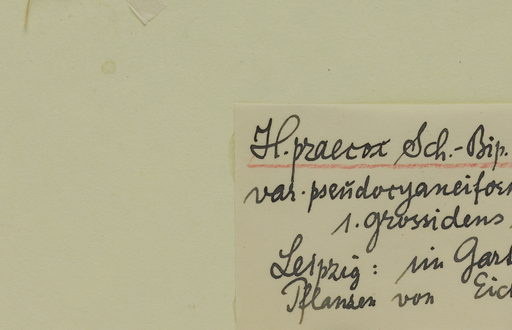 H. praecox Sch.-Bip.
var. pseudocyaneifor
1. grossidens
Leipzig: im Gart
Pflanzen von Eic